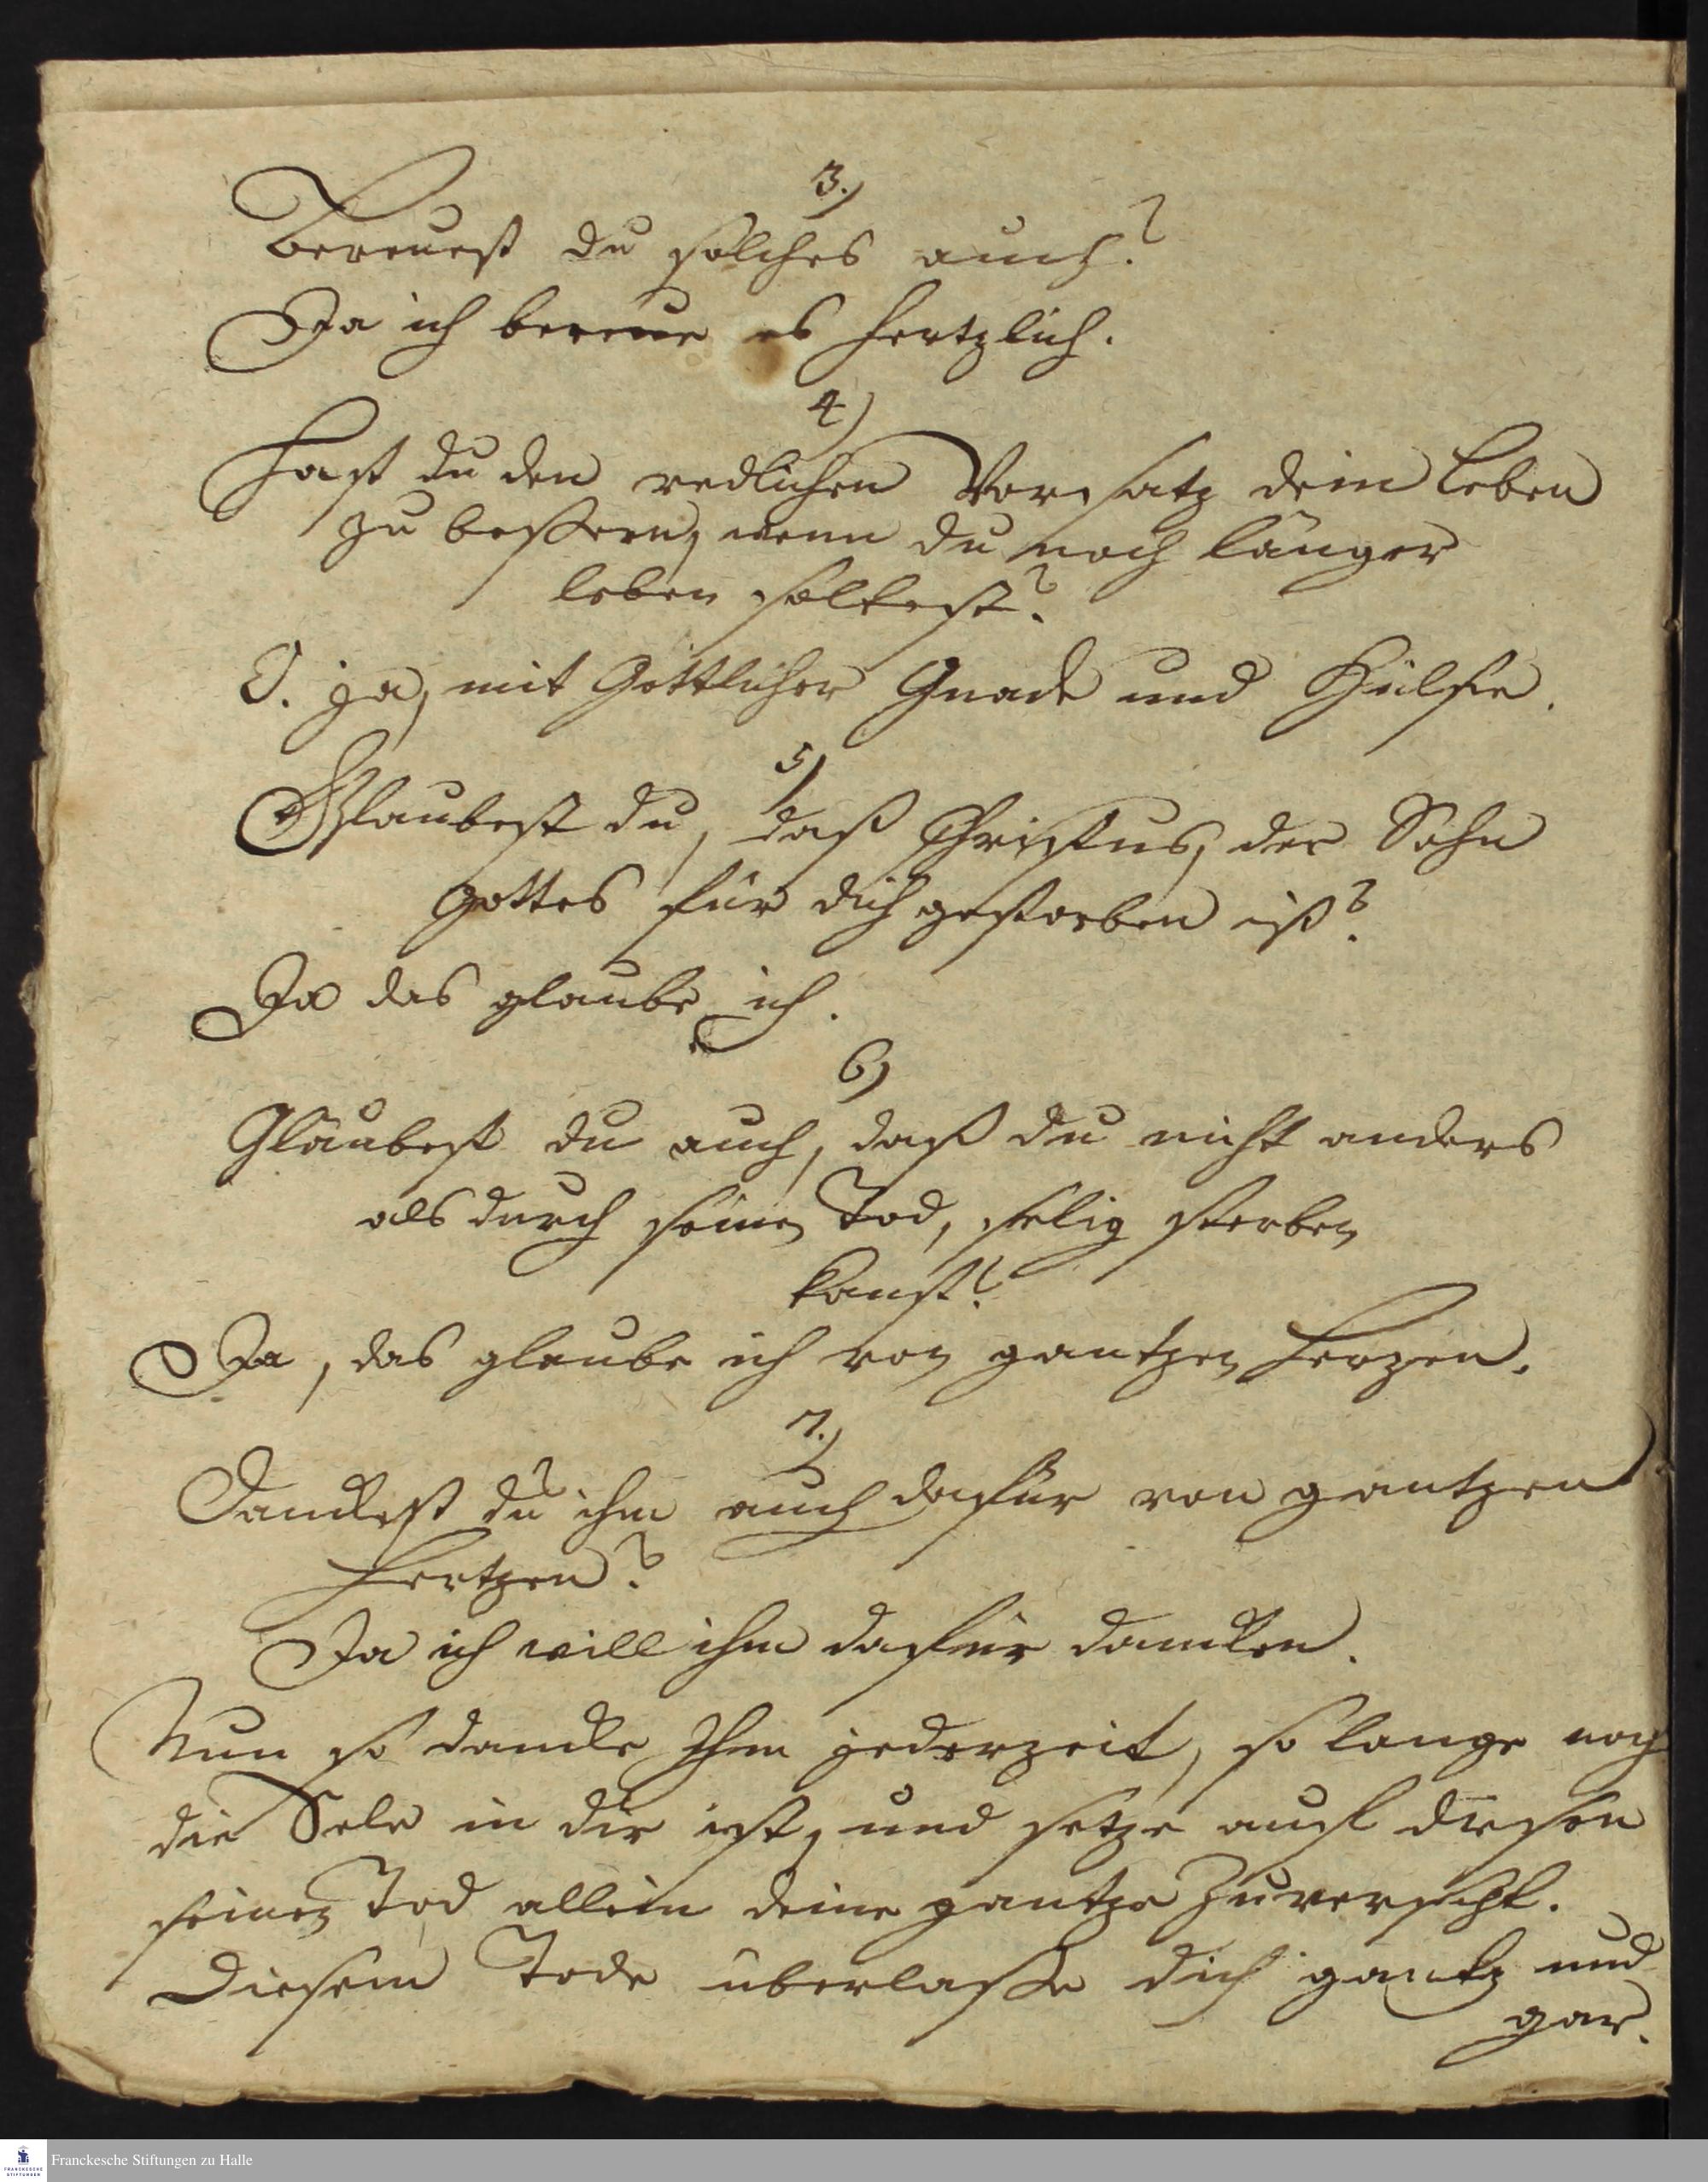 3.)
Bereuest du solches auch?
Ja ich bereue es hertzlich.
4)
Hast du den redlichen Vorsatz dein Leben
zu bessern, wenn du noch länger
leben soltest?
O. ja, mit Göttlicher Gnade und Hülfe.
5)
Glaubest du, daß Christus, der Sohn
Gottes für dich gestorben ist?
Ja das glaube ich.
6)
Gläubest du auch, daß du nicht anders
als durch seinen Tod, selig sterben
kanst?
Ja, das glaube ich von gantzen Herzen.
7.)
Danckest du ihm auch dafür von gantzen
Hertzen?
Ja ich will ihm dafür dancken.
Nun so dancke Ihm jederzeit, so lange noch
die Sele in dir ist, und setze auf diesen
seinen Tod allein deine gantze Zuversicht.
Diesem Tode überlasse dich gantz und
gar.
Franckesche Stiftungen zu Halle
FRANCKESCHE
STIFTUNGEN